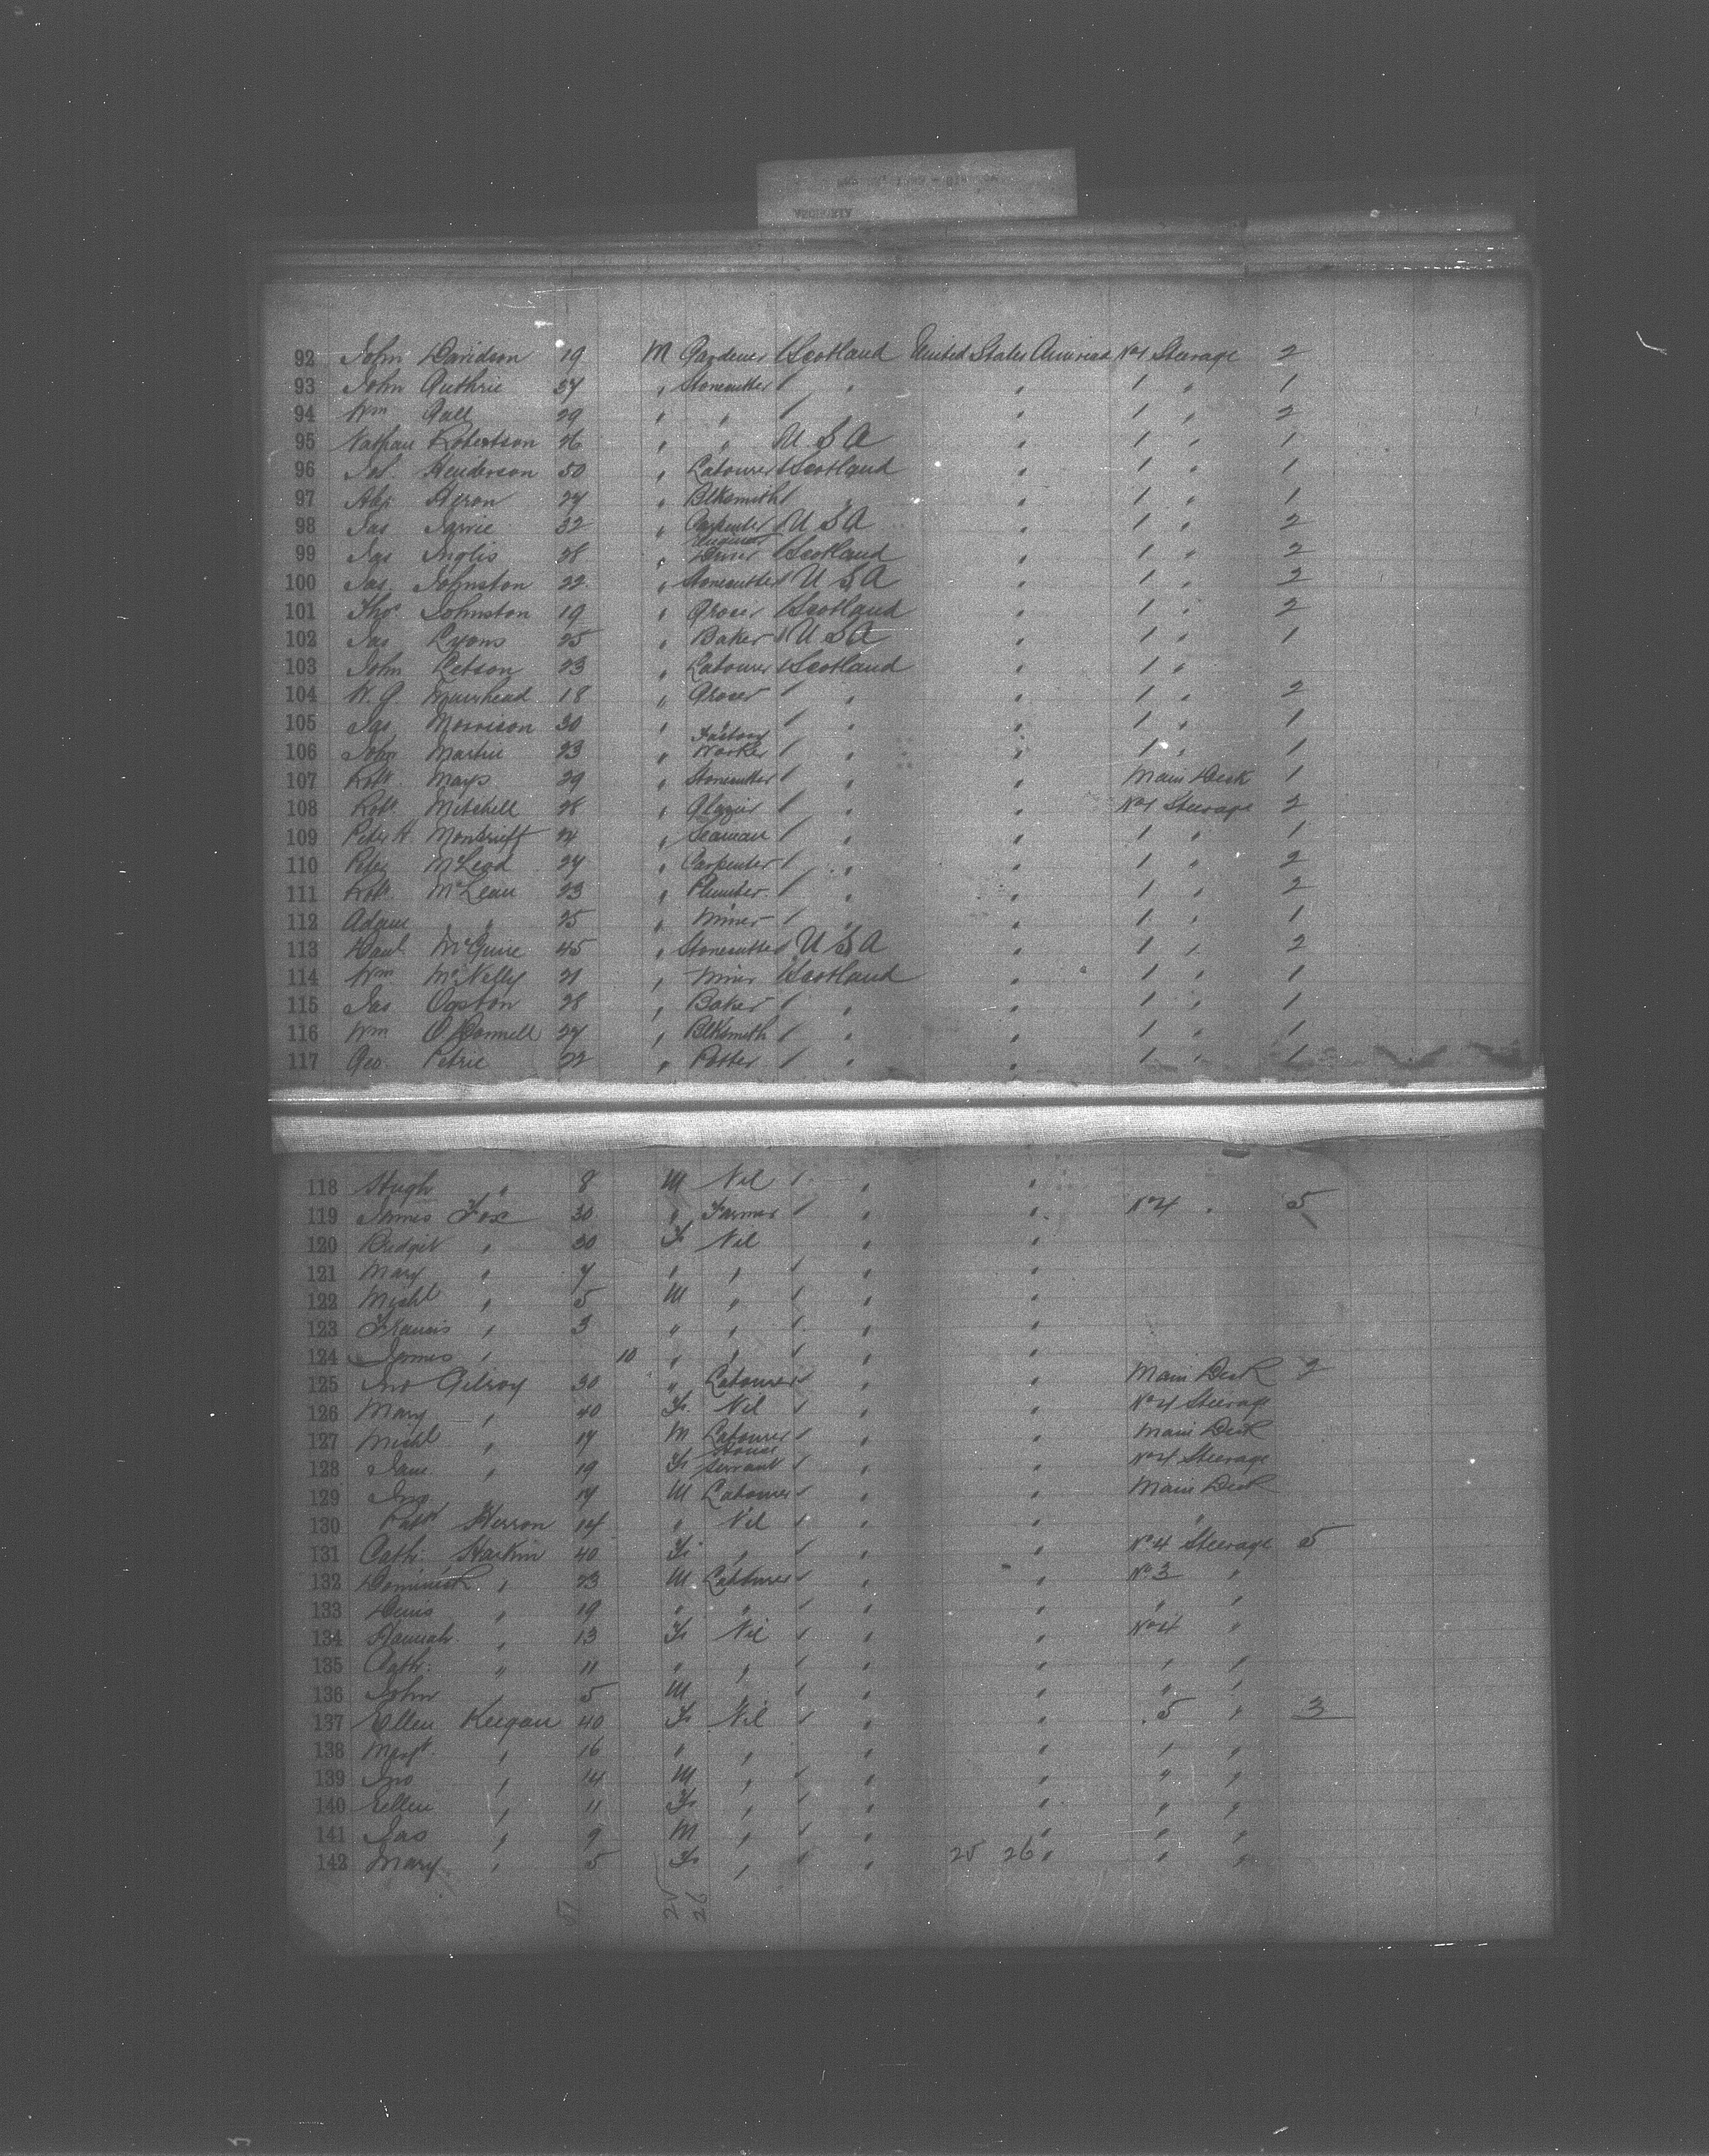 92 John Davidson 19 M Gardener Scotland United States America No 1 Steerage 2
93 John Guthrie 37 " Stonecutter " " 1 " 1
94 Wm Gall 29 " " " " 1 " 2
95 Nathan Robertson 26 " " U S A " 1 " 1
96 Jas. Henderson 50 " Labourer Scotland " 1 " 1
97 Heron 27 " Blksmith " " 1 " 1
98 Jas Jarvie 32 " Carpenter U S A " 1 " 2
99 Jas Inglis 28 " Engine Driver Scotland " 1 " 2
100 Jas Johnston 22 " Stonecutter U S A " 1 " 2
101 Thos. Johnston 19 " Grocer Scotland " 1 " 2
102 Jas Lyons 25 " Baker U S A " 1 " 1
103 John 23 " Labourer Scotland " 1 "
104 W. G. Muirhead 18 " Grocer " " 1 " 2
105 Jas Morrison 30 " " " 1 " 1
106 John Martin 23 " Factory Worker " " 1 " 1
107 Robt. Mays 29 " Stonecutter " " Main Deck 1
108 Robt. Mitchell 28 " Glazier " " No 1 Steerage 2
109 Peter H. Moncrieff " Seaman " " 1 " 1
110 Peter McLeod 27 " Carpenter " " 1 " 2
111 Robt. McLean 23 " Plumber " " 1 " 2
112 Adam " 25 " Miner " " 1 " 1
113 Danl McGuire 45 " Stonecutter U S A " 1 " 2
114 Wm McNelly 21 " Miner Scotland " 1 " 1
115 Jas Ogston 28 " Baker " " 1 " 1
116 Wm O'Donnell 27 " Blksmith " " 1 " 1
117 Geo. Petrie 22 " Potter " " 1 " 1
118 Hugh " 8 M Nil " "
119 James Fox 30 " Farmer " " No 4 " 5
120 Bridget " 30 F Nil " "
121 Mary " 7 " " " "
122 Michl " 5 M " " "
123 Francis " 3 " " " "
124 James " 10 " " " "
125 Jno Gilroy 30 " Labourer " " Main Deck 2
126 Mary " 40 F Nil " " No 4 Steerage
127 Michl " 17 M Labourer " " Main Deck
128 Jane " 19 F House Servant " " No 4 Steerage
129 Jno " 17 M Labourer " " Main Deck
130 Patk Herron 14 " Nil " " "
131 Cath. Harkin 40 F " " " No 4 Steerage 5
132 Dominick " 23 M Labourer " " No 3 "
133 Denis " 19 " " " " " "
134 Hannah " 13 F Nil " " No 4 "
135 Cath. " 11 " " " " " "
136 John " 5 M " " " " "
137 Ellen Keegan 40 F Nil " " 5 " 3
138 Margt. " 16 " " " " " "
139 Jno " 14 M " " " " "
140 Ellen " 11 F " " " " "
141 Jas " 9 M " " " " "
142 Mary " 5 F " " 25 26 " " "
25
26